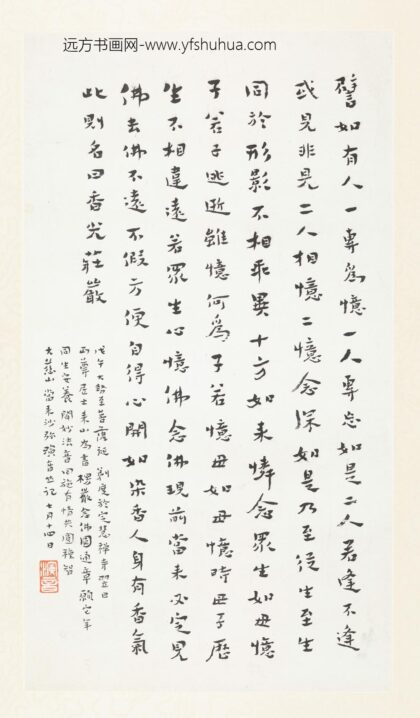 远方书画网-www.yfshuhua.com
譬如有人一專為憶一人專忘如是二人若逢不逢
或見非見二人相憶二憶念深如是乃至從生至生
同於形影不相乖異十方如來憐念眾生如母憶
子若子逃逝雖憶何為子若憶母如母憶時母子歷
生不相違遠若眾生心憶佛念佛現前當來必定見
佛去佛不遠不假方便自得心開如染香人身有香氣
此則名曰香光莊嚴
戊午大勢至菩薩誕剃度於定慧禪寺翌日
丏尊居士來山為書楞嚴念佛圓通章願它年
同生安養聞妙法音回施有情共圓種智
大慈山當來沙彌演音并記 七月十四日
演音